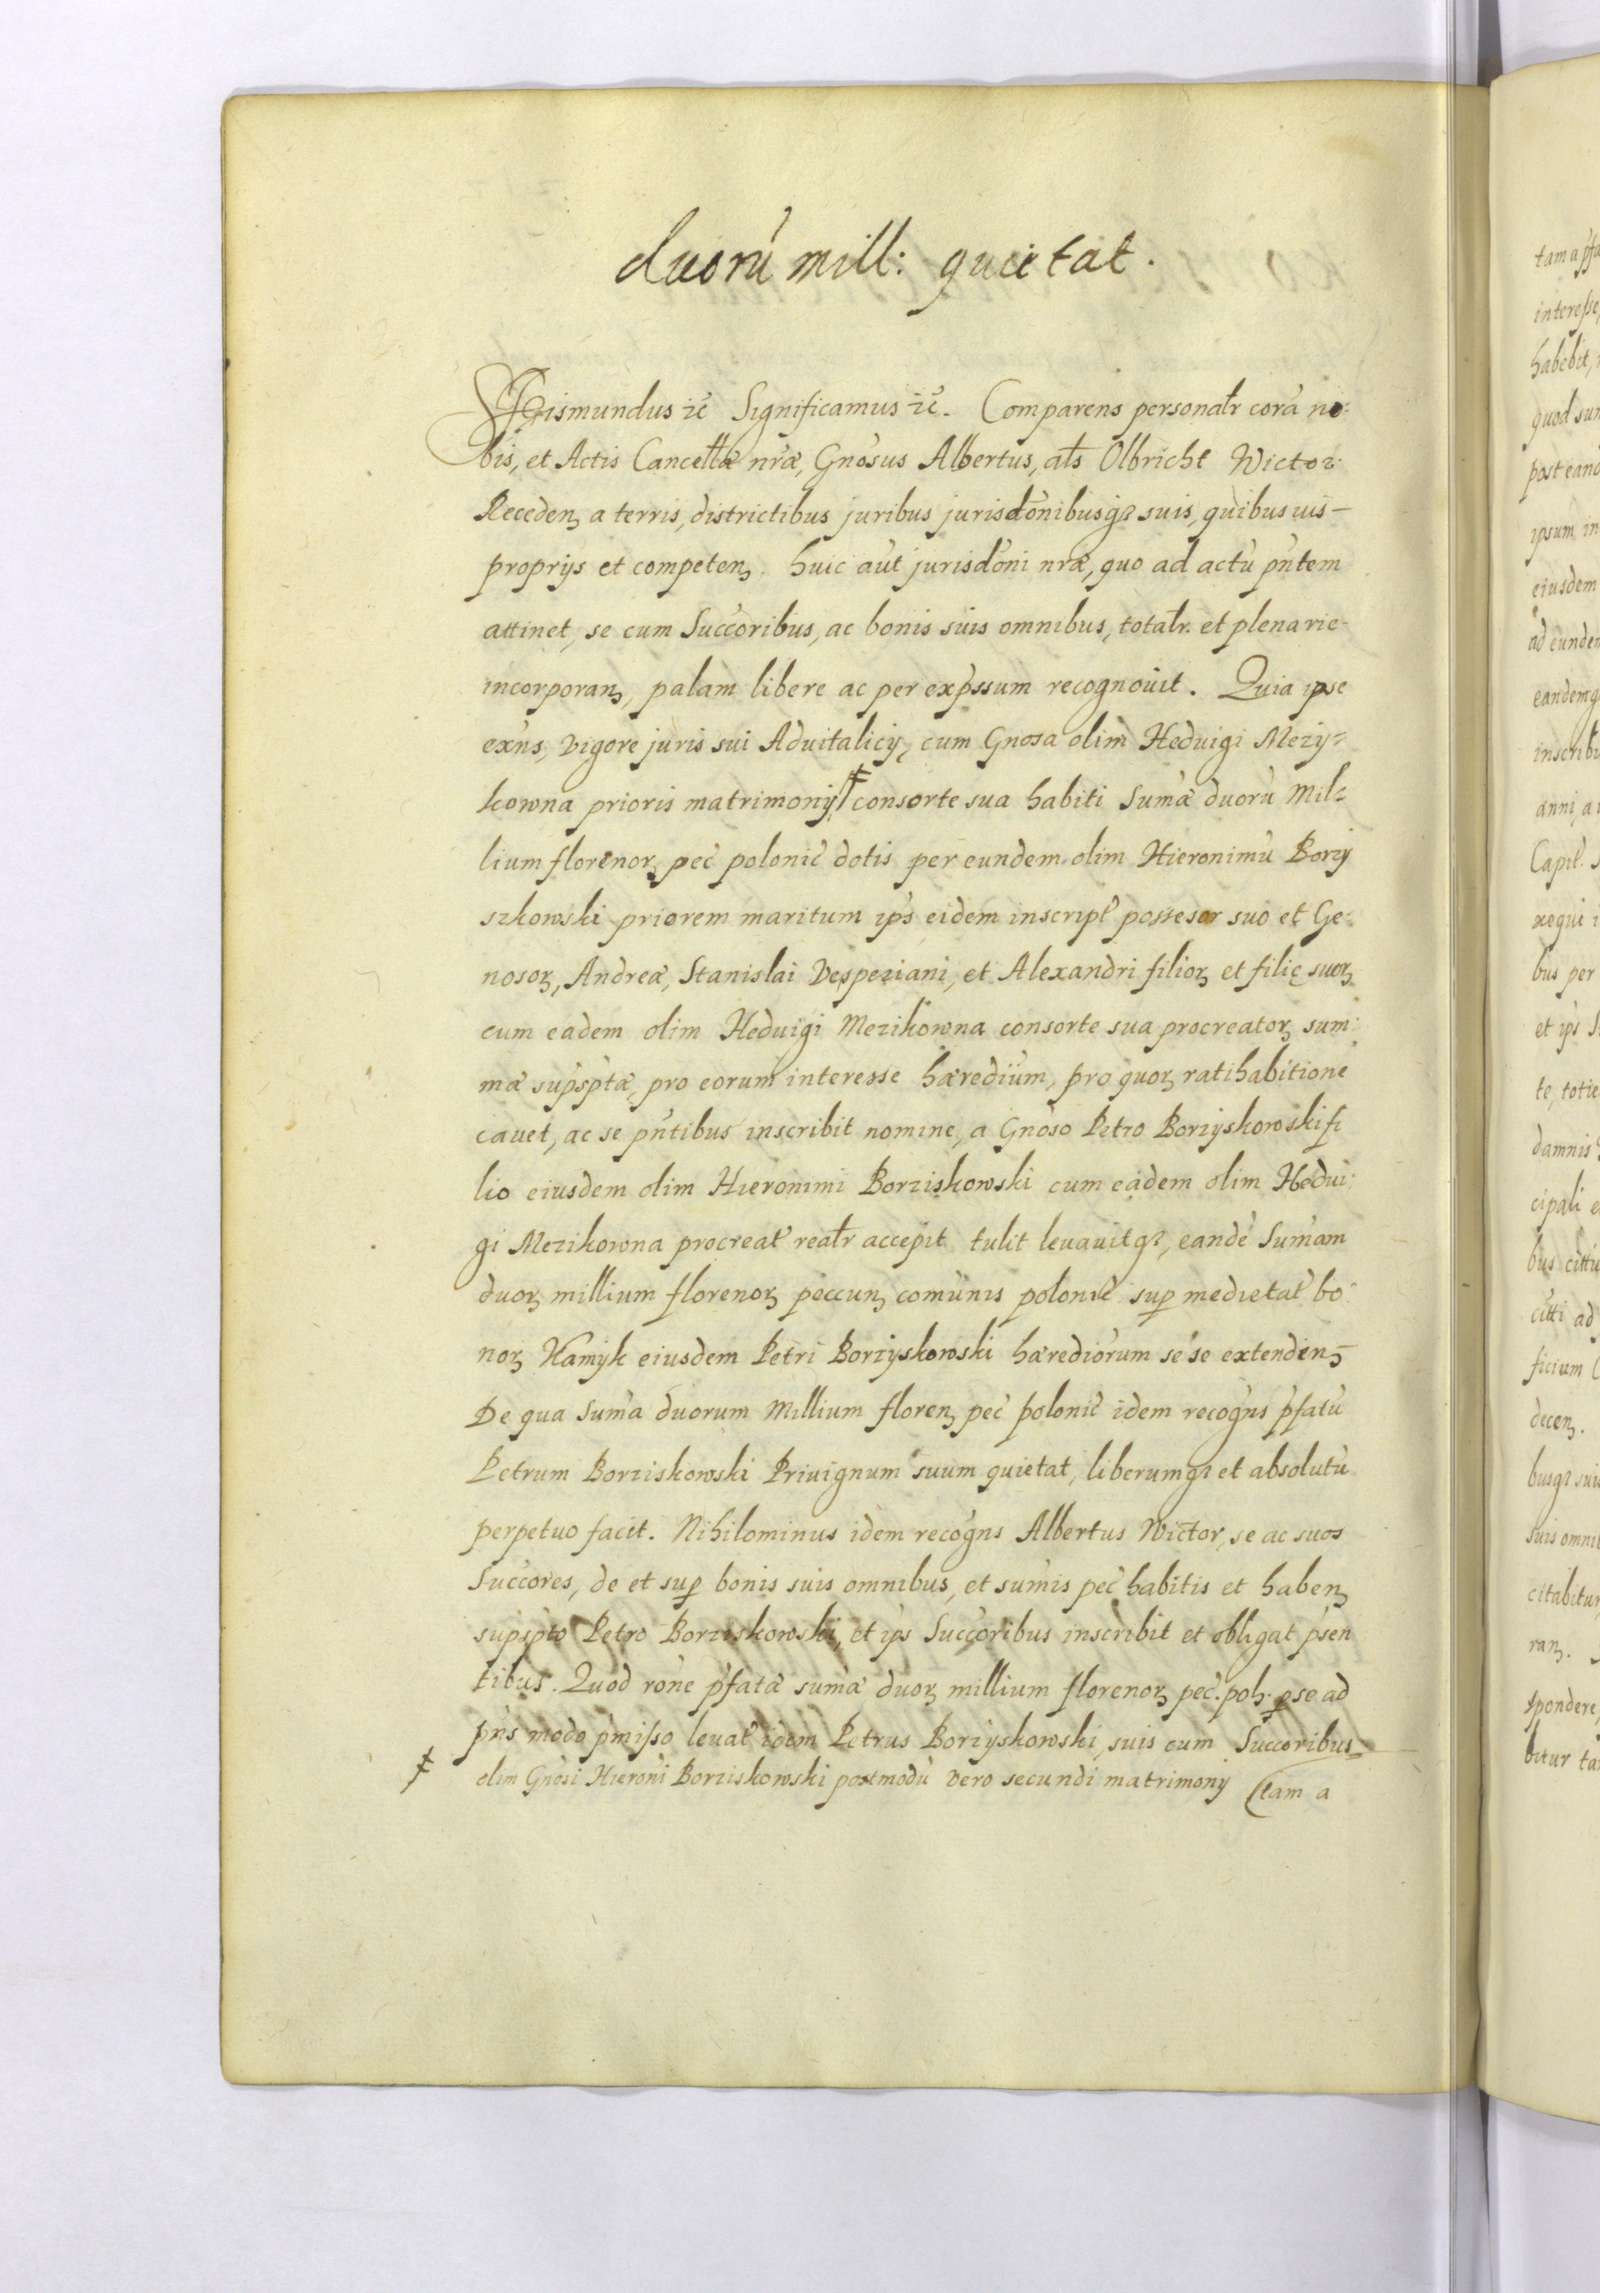 duorū mill: quietat.
Sigismundus ēt Significamus ēt. Comparens personalr corā no:
bis, et Actis Cancellæ nræ, Gnosus Albertus, als Olbricht Wictor
Receden̄ a terris, districtibus juribus jurisdōnibusq3 suis, quibusuis
proprijs et competen̄. huic aūt jurisdōni nræ, quo ad actū pn̄tem
attinet, se cum Succ̄oribus, ac bonis suis omnibus, totalr. et plenarie
incorporan̄, palam libere ac per exp̄ssum recognouit. Quia ipse
exn̄s, vigore juris sui Aduitalicij, cum Gnosa olim Heduigi Mezy=
kowna prioris matrimonij ǂ consorte sua habiti Sum̄æ duorū Mil=
lium florenor̨ pec̄ polonic̄ dotis per eundem olim Hieronimū Borzy
szkowski priorem maritum ip̄s eidem inscript̄ possesor suo et Ge:
nosor̨, Andreæ, Stanislai Vespeziani, et Alexandri filior̨ et filię suor̨
cum eadem olim Heduigi Mezikowna consorte sua procreator̨ sum:
mæ sup̄sptæ, pro eorum interesse hærediūm, pro quor̨ ratihabitione
cauet, ac se pn̄tibus inscribit nomine, a Gnōso Petro Borzyskowski fi
lio eiusdem olim Hieronimi Borziskowski cum eadem olim Hedui:
gi Mezikowna procreat̄ realr accepit tulit leuauitq3, eandē Sum̄am
duor̨ millium florenor̨ peccun̄ comūnis polonic̄ sup̱ medietat̄ bo:
nor̨ Hamyk eiusdem Petri Borzyskowski hærediōrum sese extenden̄
De qua Sum̄a duorum Millium floren̄ pec̄ polonic̄ idem recogn̄s p̄fatū
Petrum Borziskowski Priuignum suum quietat, liberumq3 et absolutū
perpetuo facit. Nihilominus idem recogn̄s Albertus Wictor, se ac suos
Succ̄ores, de et sup̱ bonis suis omnibus, et sum̄is pec̄ habitis et haben̄
sup̄spto Petro Borziskowski, et ip̄s Succ̄oribus inscribit et obligat p̄sen
tibus. Quod rōne p̄fatæ sum̄æ duor̨ millium florenor̨ pec̄. pol̨. p̱ se ad
pn̄s modo p̄misso leuat̄ idem Petrus Borzyskowski, suis cum Succ̄oribus
ǂ olim Gnōsi Hieronī Borziskowski postmodū vero secundi matrimonij (tam a